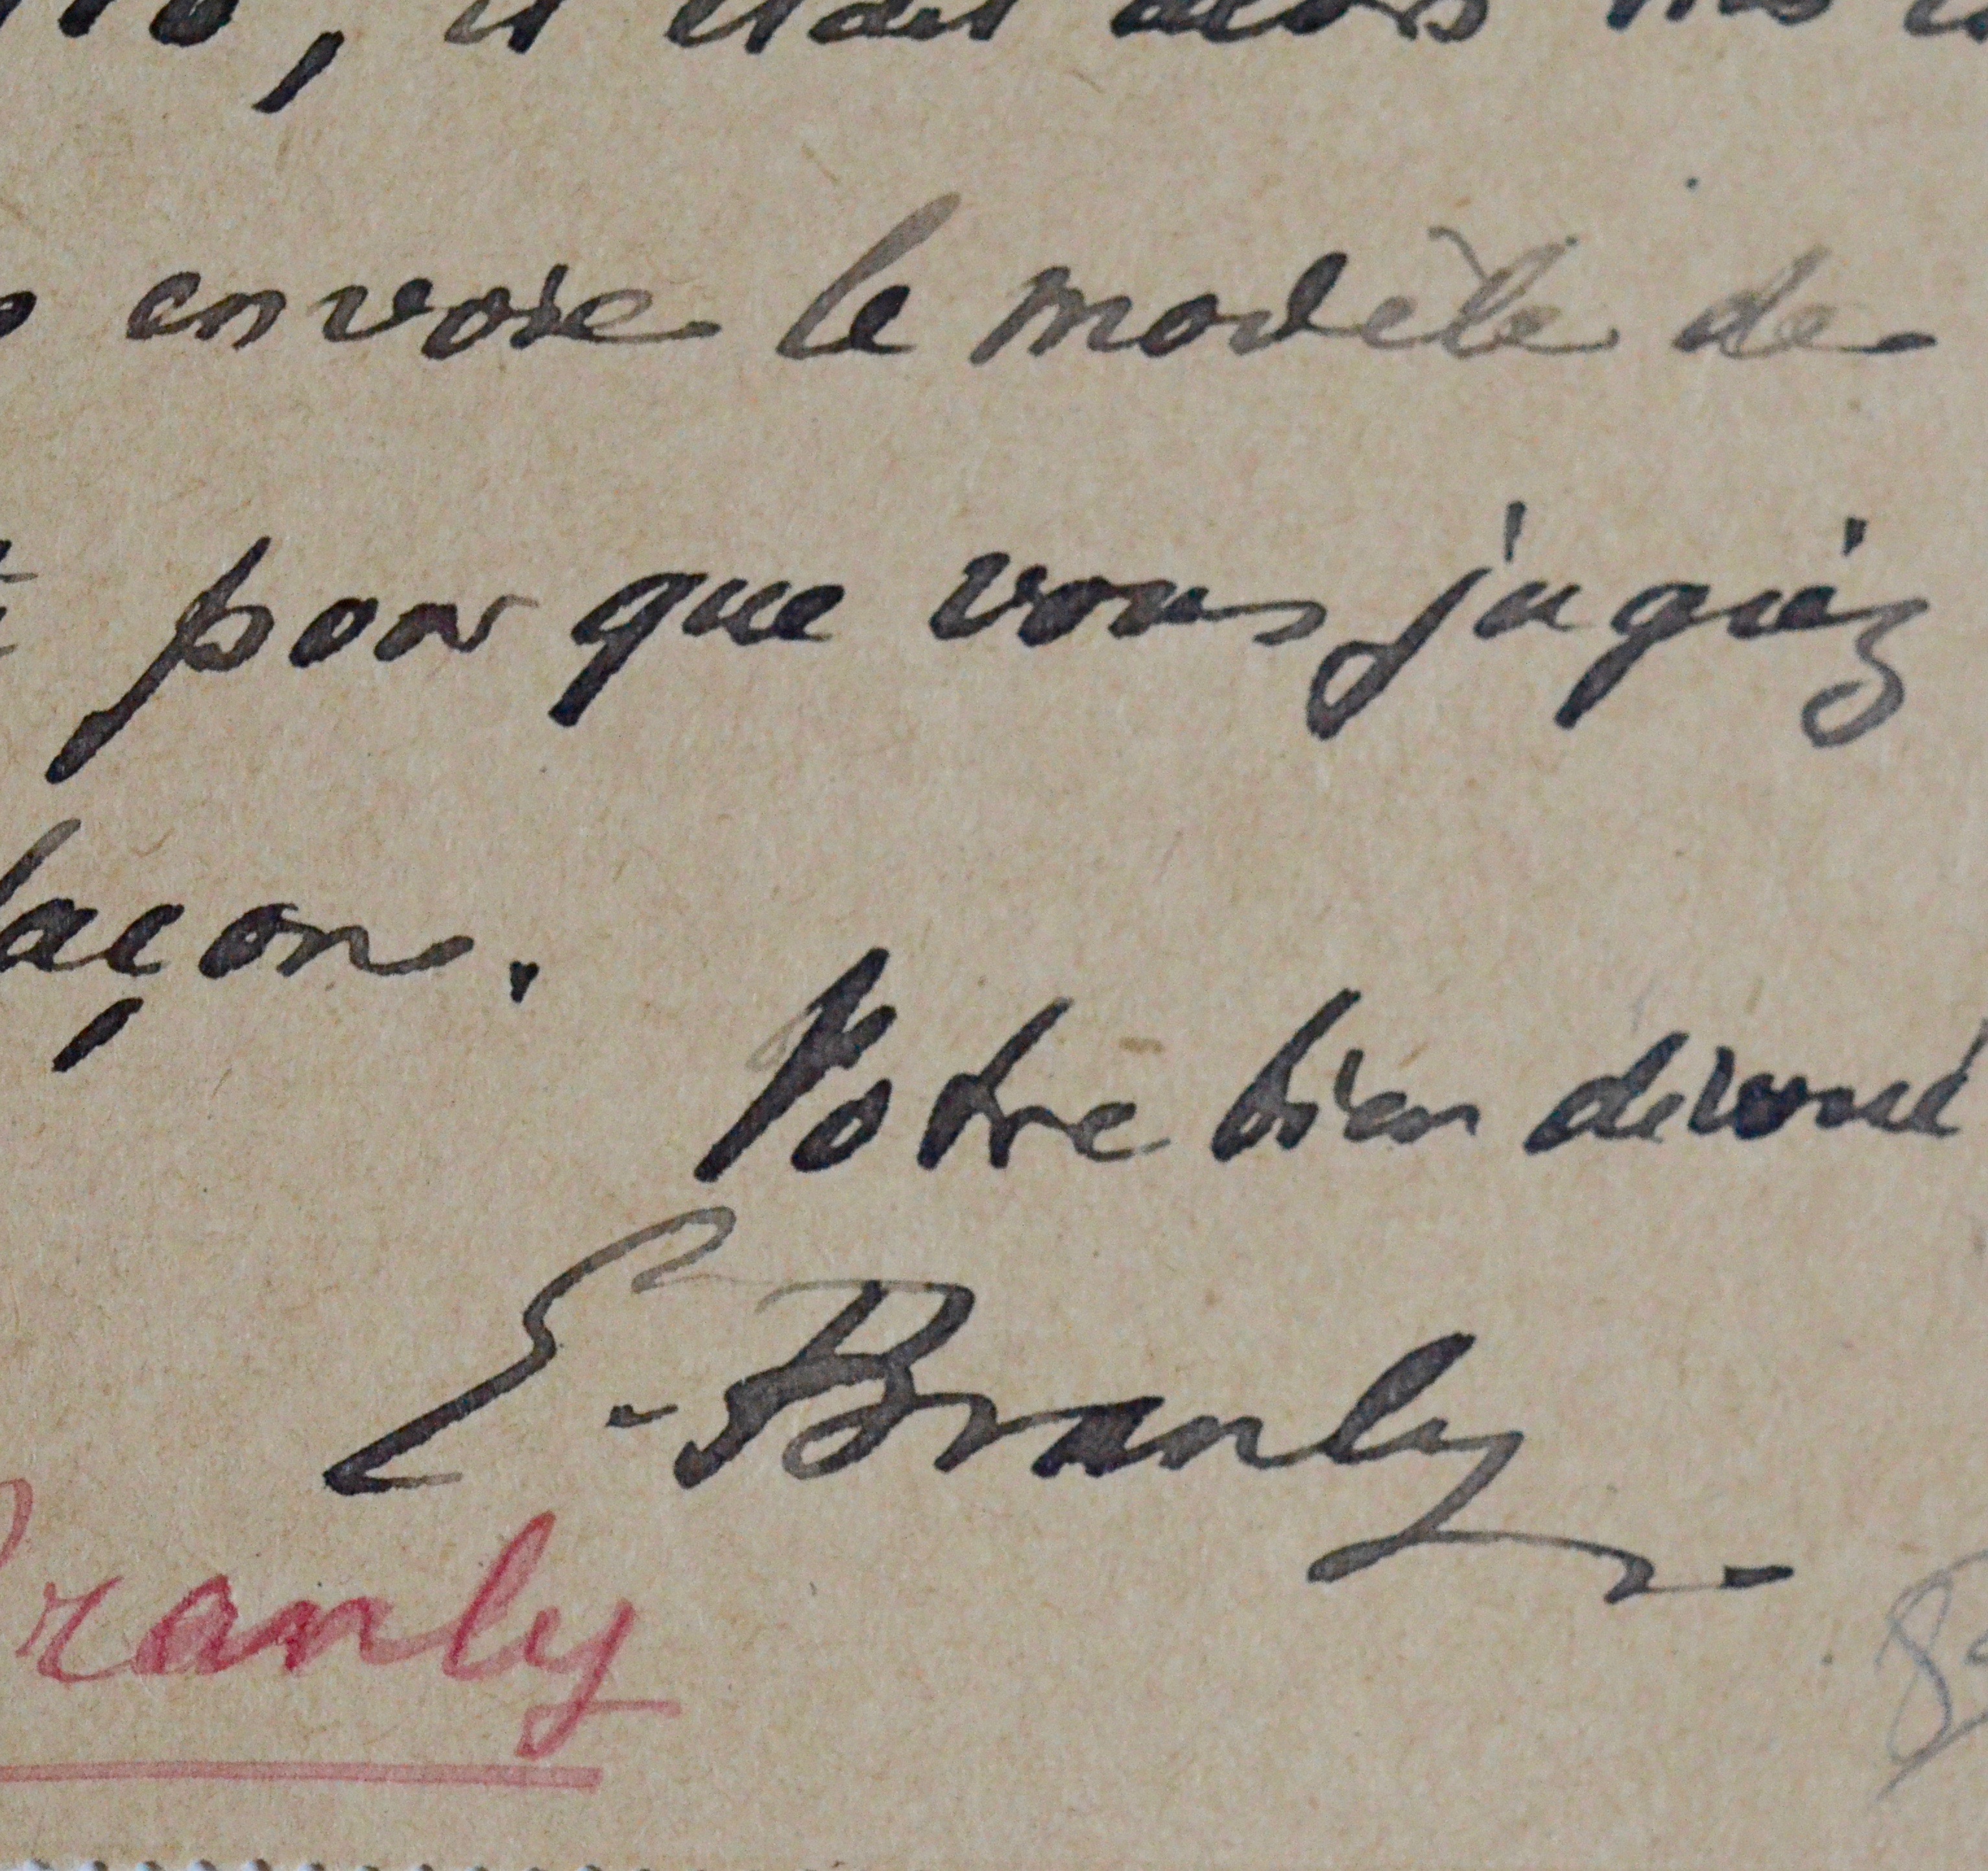 , il était alors très
envoie le modèle de
pour que vous jugiez
façon.
Votre bien dévoué
E. Branly
Branly